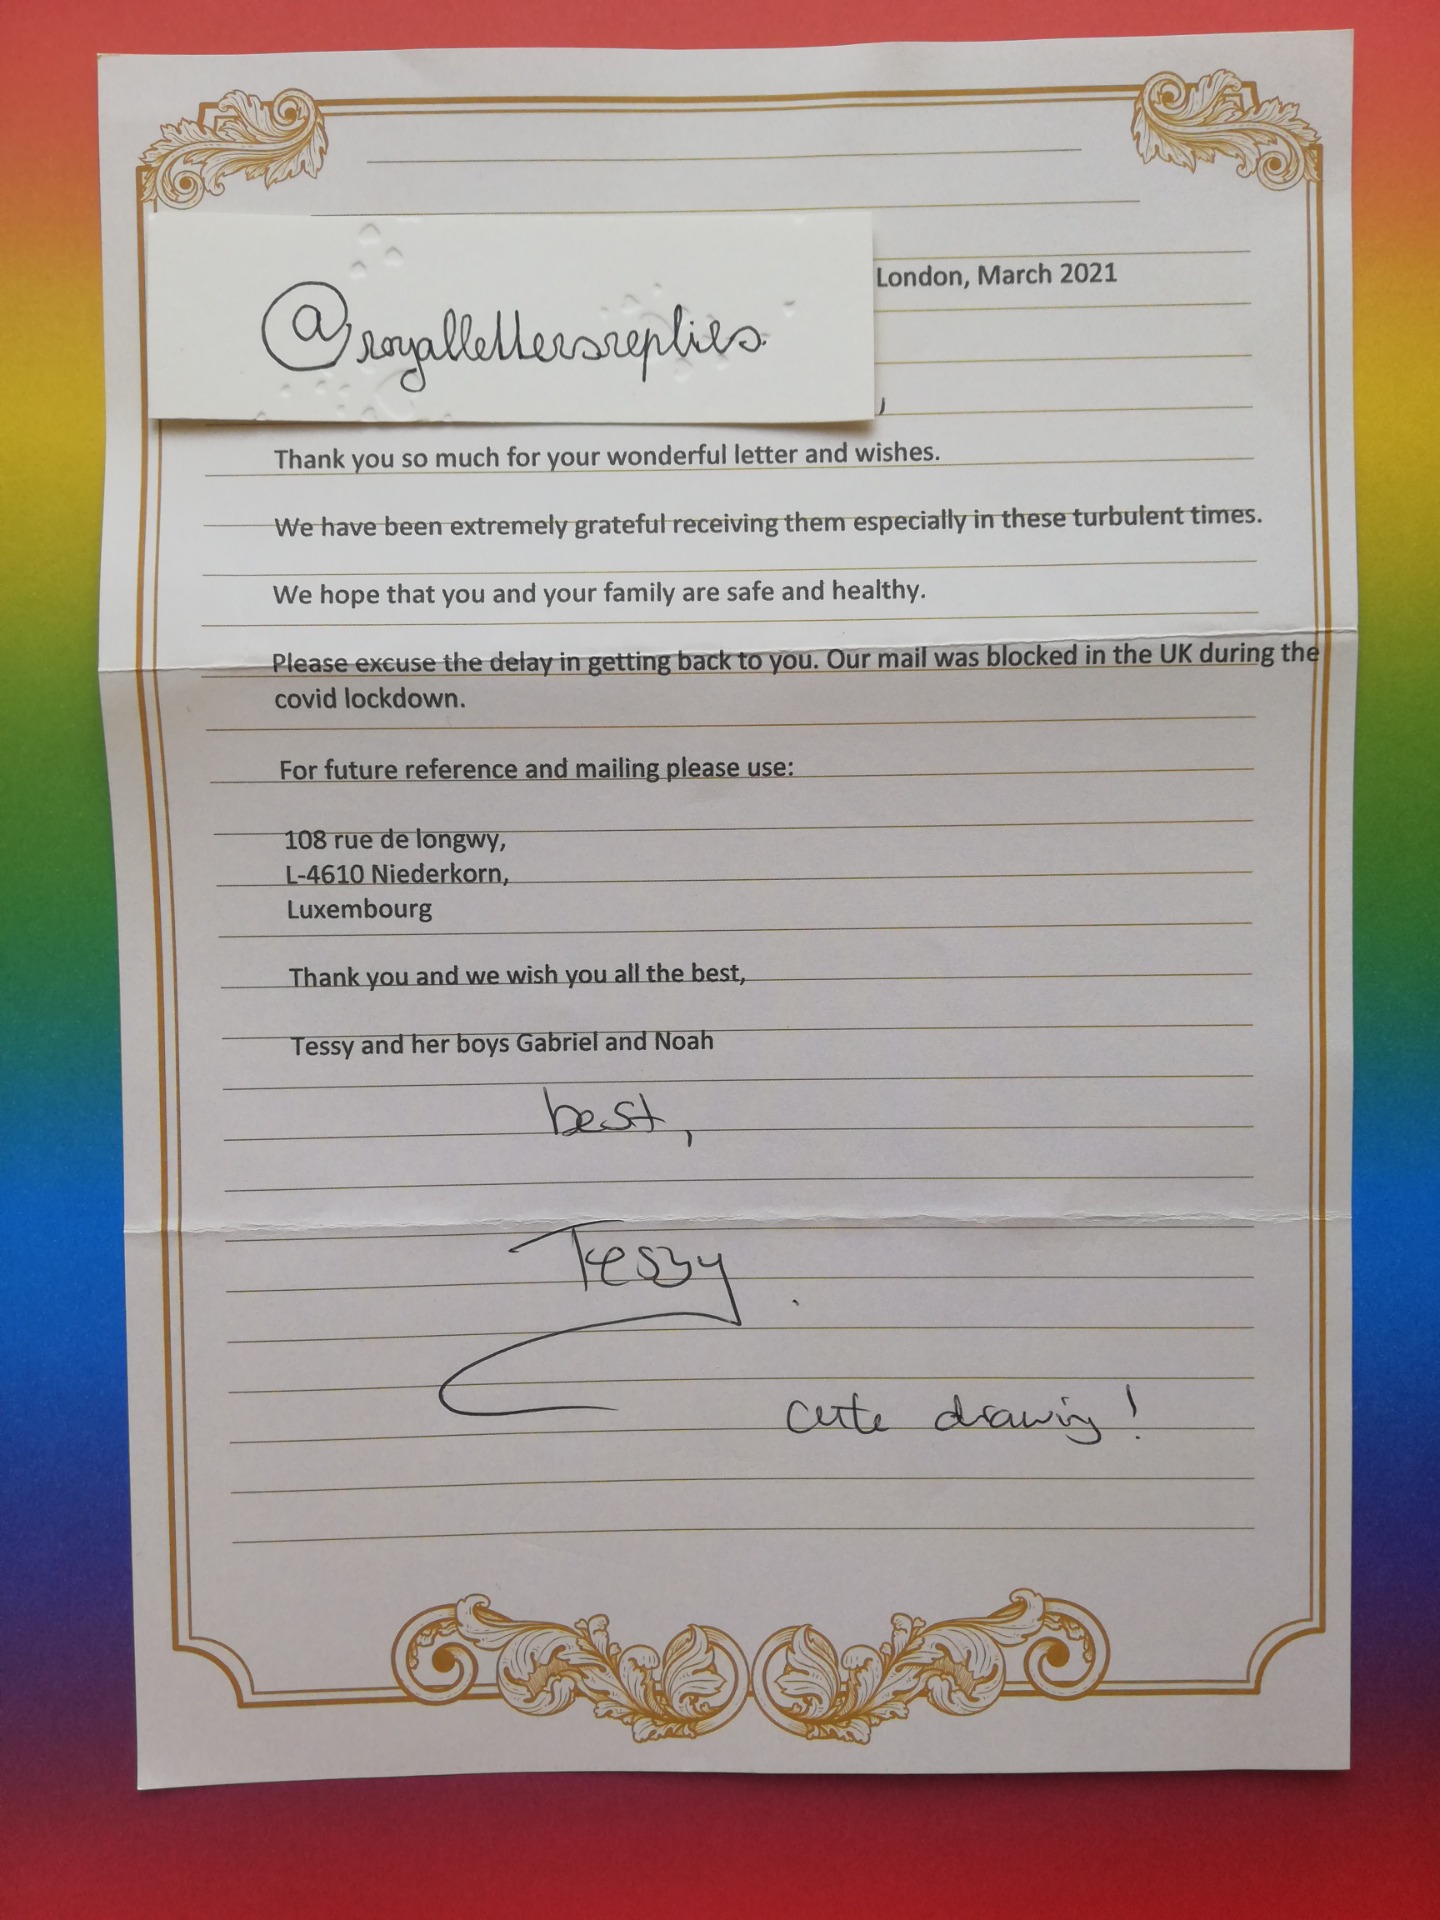 London, March 2021
@royallettersreplies
,
Thank you so much for your wonderful letter and wishes.
We have been extremely grateful receiving them especially in these turbulent times.
We hope that you and your family are safe and healthy.
Please excuse the delay in getting back to you. Our mail was blocked in the UK during the
covid lockdown.
For future reference and mailing please use:
108 rue de longwy,
L-4610 Niederkorn,
Luxembourg
Thank you and we wish you all the best,
Tessy and her boys Gabriel and Noah
best,
Tessy
cute drawing!